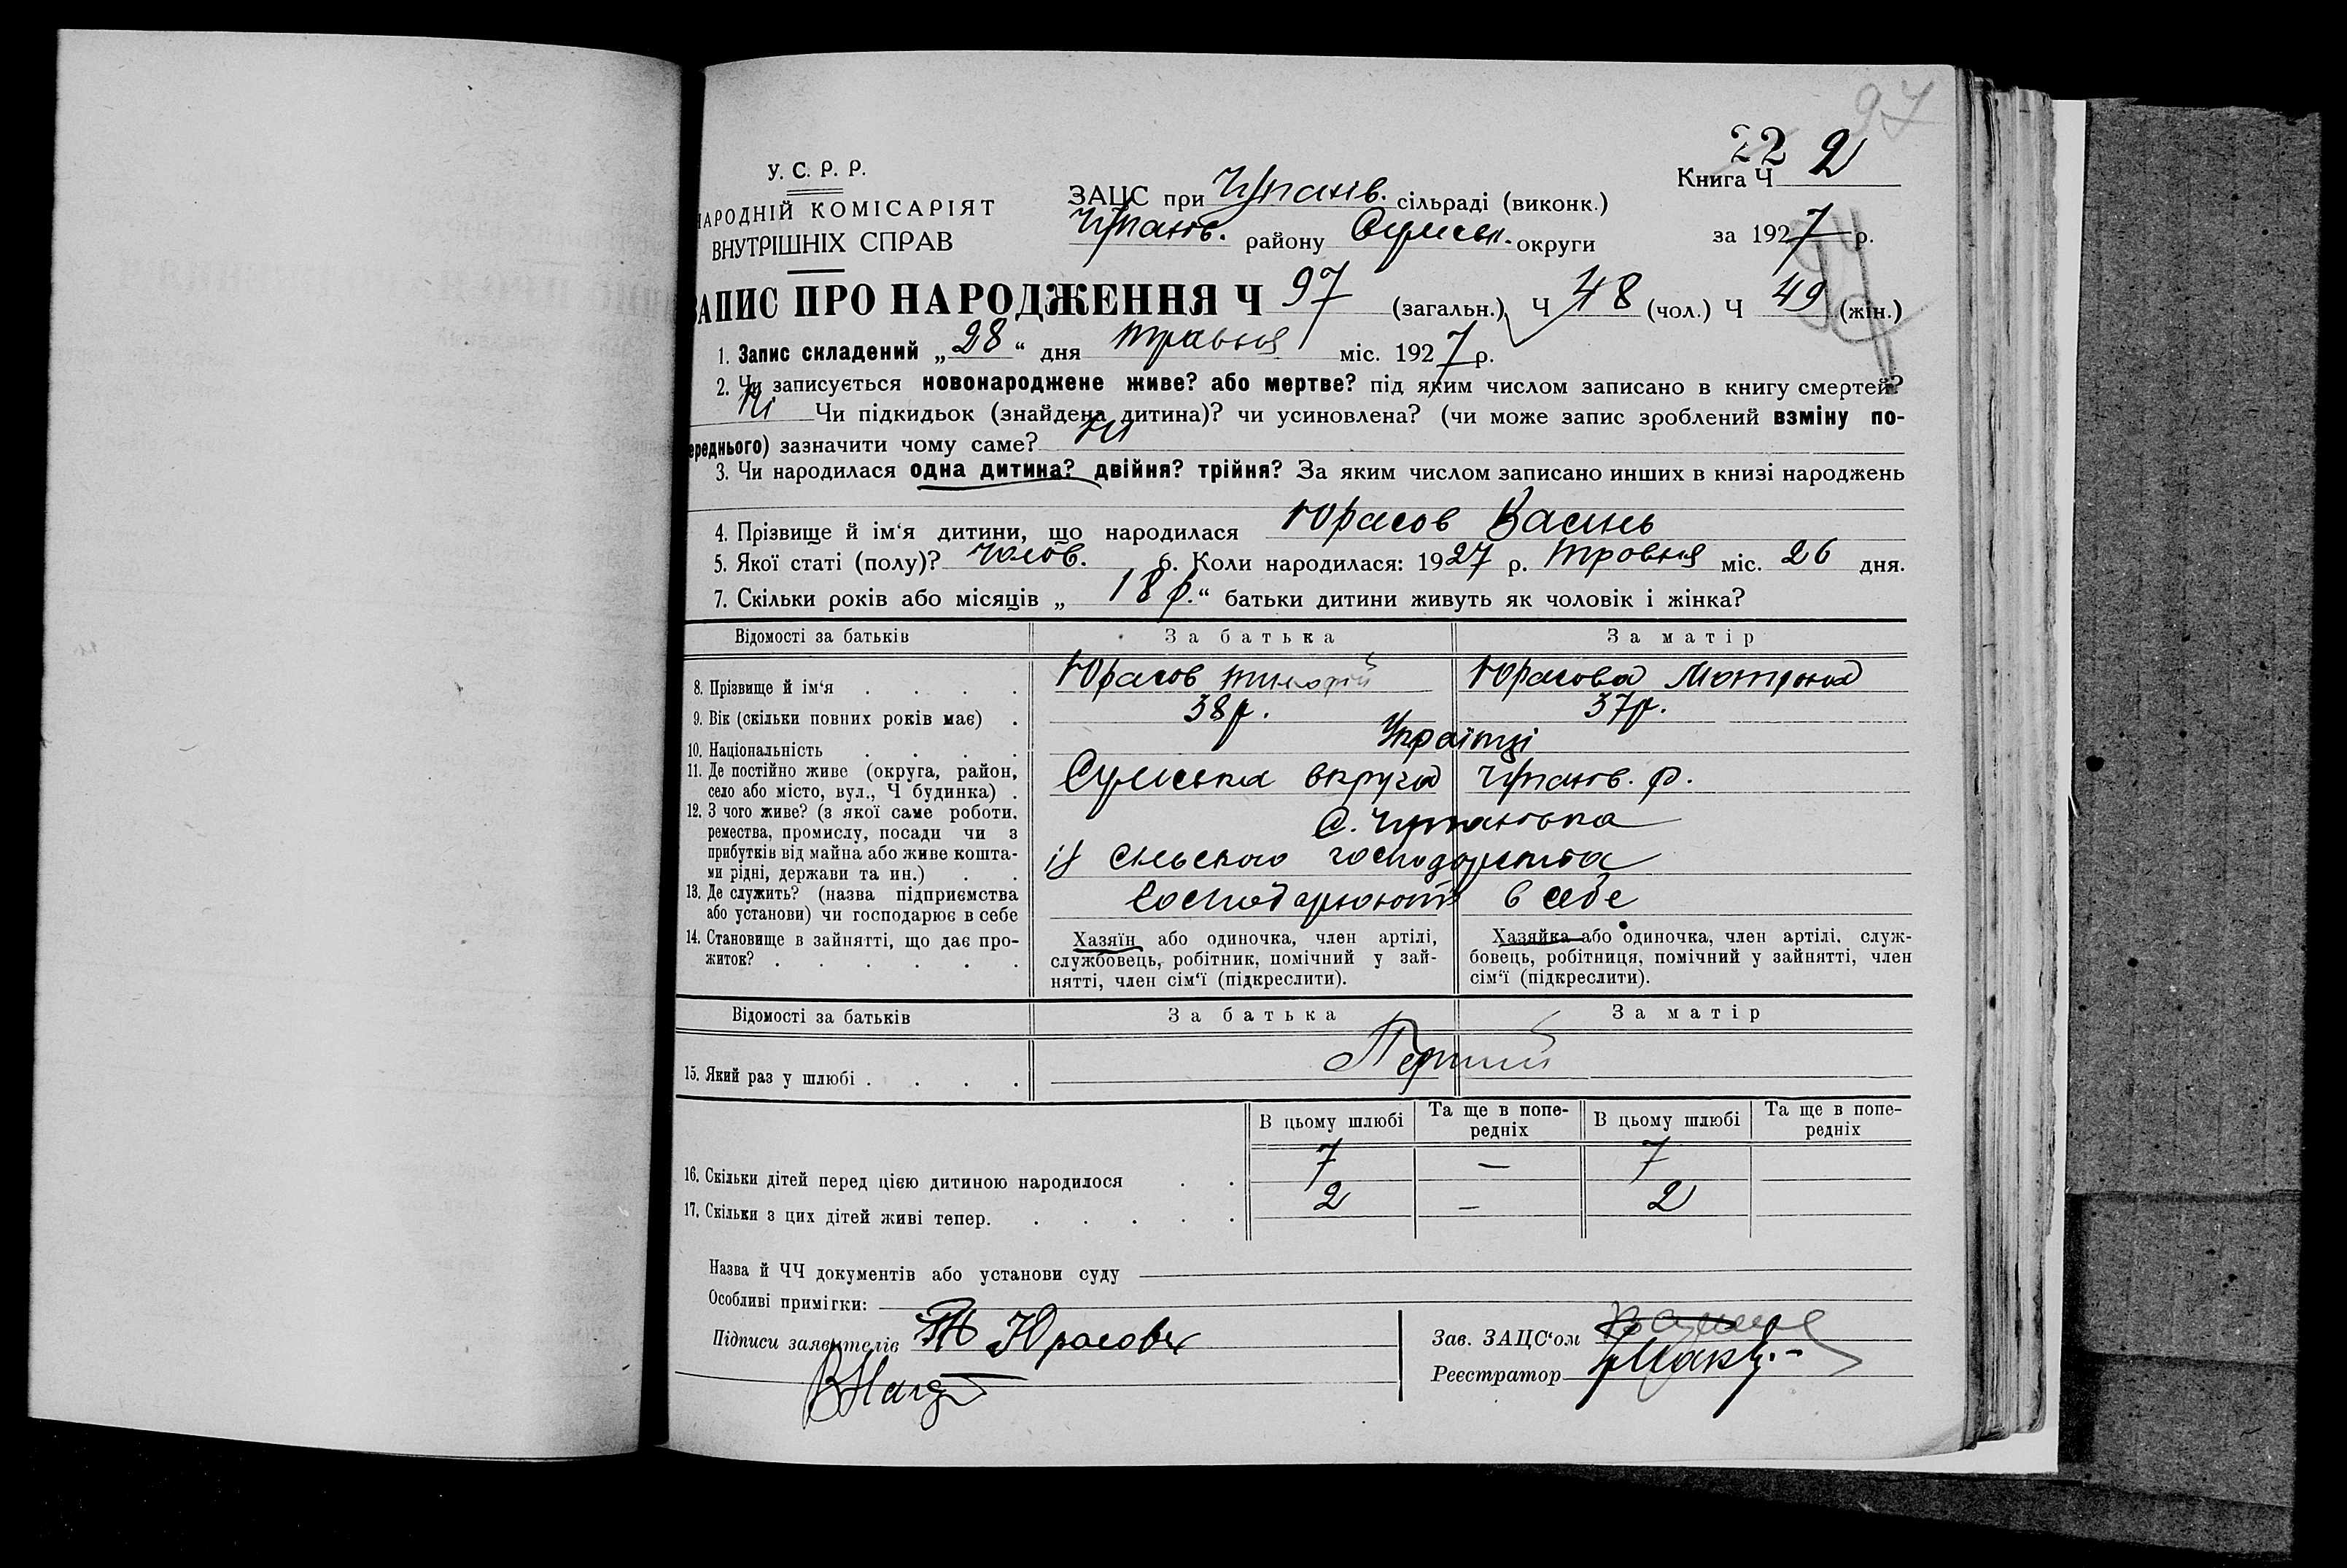 97
22 2
У. С. Р. Р.
Книга Ч
НАРОДНІЙ КОМІСАРІЯТ
ВНУТРІШНІХ СПРАВ
ЗАЦС при Чупахів. сільраді (виконк.)
Чупахів. району Сумськ. округи
за 1927 р.
ЗАПИС ПРО НАРОДЖЕННЯ Ч 97 (загальн.) Ч 48 (чол.) Ч 49 (жін.)
1. Запис складений „28“ дня травня міс. 1927 р.
2. Чи записується новонароджене живе? або мертве? під яким числом записано в книгу смертей?
Ні Чи підкидьок (знайдена дитина)? чи усиновлена? (чи може запис зроблений взміну по-
ереднього) зазначити чому саме? ні
3. Чи народилася одна дитина? двійня? трійня? За яким числом записано инших в книзі народжень
4. Прізвище й ім‘я дитини, що народилася Юрасов Василь
5. Якої статі (полу)? чолов. 6. Коли народилася: 1927 р. тровня міс. 26 дня.
7. Скільки років або місяців „ 18 р. “ батьки дитини живуть як чоловік і жінка?
Відомості за батьків За батька За матір
8. Прізвище й ім‘я . . . . Юрасов Юрасова Мотрона
9. Вік (скільки повних років має) . 38 р. 37 р.
10. Національність . . . . Українці
11. Де постійно живе (округа, район,
село або місто, вул., Ч будинка) . Сумська округа Чупахів. р.
12. З чого живе? (з якої саме роботи,
ремества, промислу, посади чи з С. Чупахівка
прибутків від майна або живе кошта-
ми рідні, держави та ин.) . . із сільського господарства
13. Де служить? (назва підприємства
або установи) чи господарює в себе Господарюють в себе
14. Становище в зайнятті, що дає про-
житок? . . . . . .
Хазяїн або одиночка, член артілі,
службовець, робітник, помічний у зай-
нятті, член сім‘ї (підкреслити).
Хазяйка або одиночка, член артілі, служ-
бовець, робітниця, помічний у зайнятті, член
сім‘ї (підкреслити).
Відомості за батьків За батька За матір
15. Який раз у шлюбі . . . . Перший
В цьому шлюбі Та ще в попе-
редніх В цьому шлюбі Та ще в попе-
редніх
16. Скільки дітей перед цією дитиною народилося . . 7 — 7
17. Скільки з цих дітей живі тепер. . . . . . 2 — 2
Назва й ЧЧ документів або установи суду
Особливі примігки:
Підписи заявителів Юрасов
Зав. ЗАЦС‘ом
Реєстратор